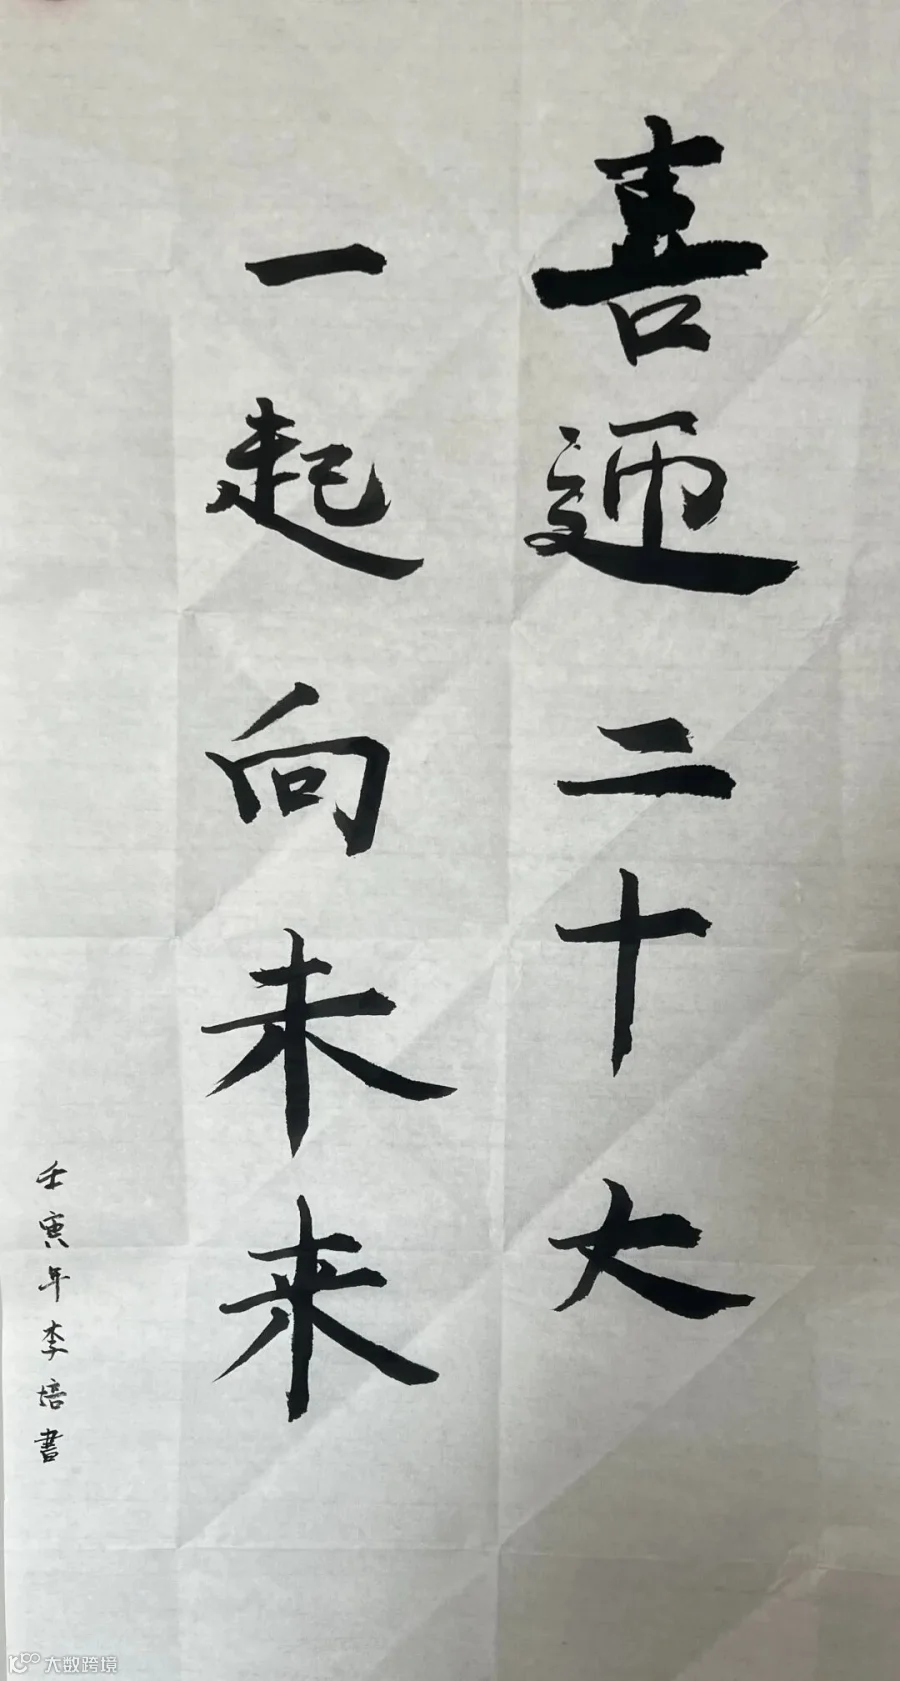 喜迎二十大
一起向未来
壬寅年李培書
大数跨境